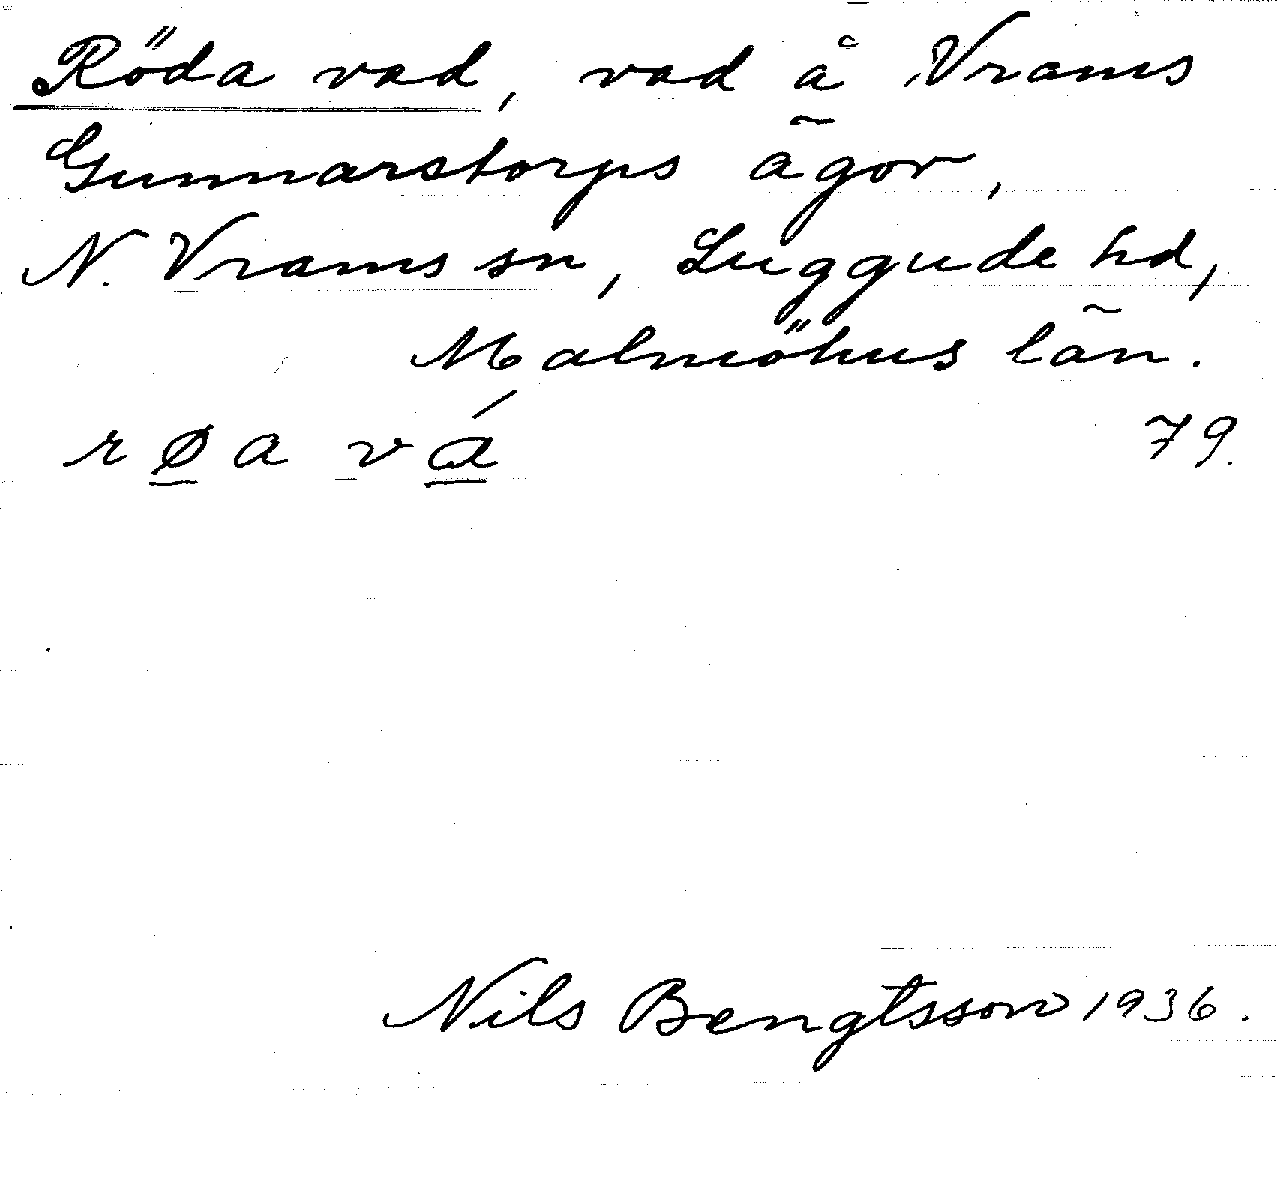 Röda vad, vad å Vrams
Gunnarstorps ägor,
N. Vrams sn, Luggude hd,
Malmöhus län.
røa vá 79.
Nils Bengtsson 1936.